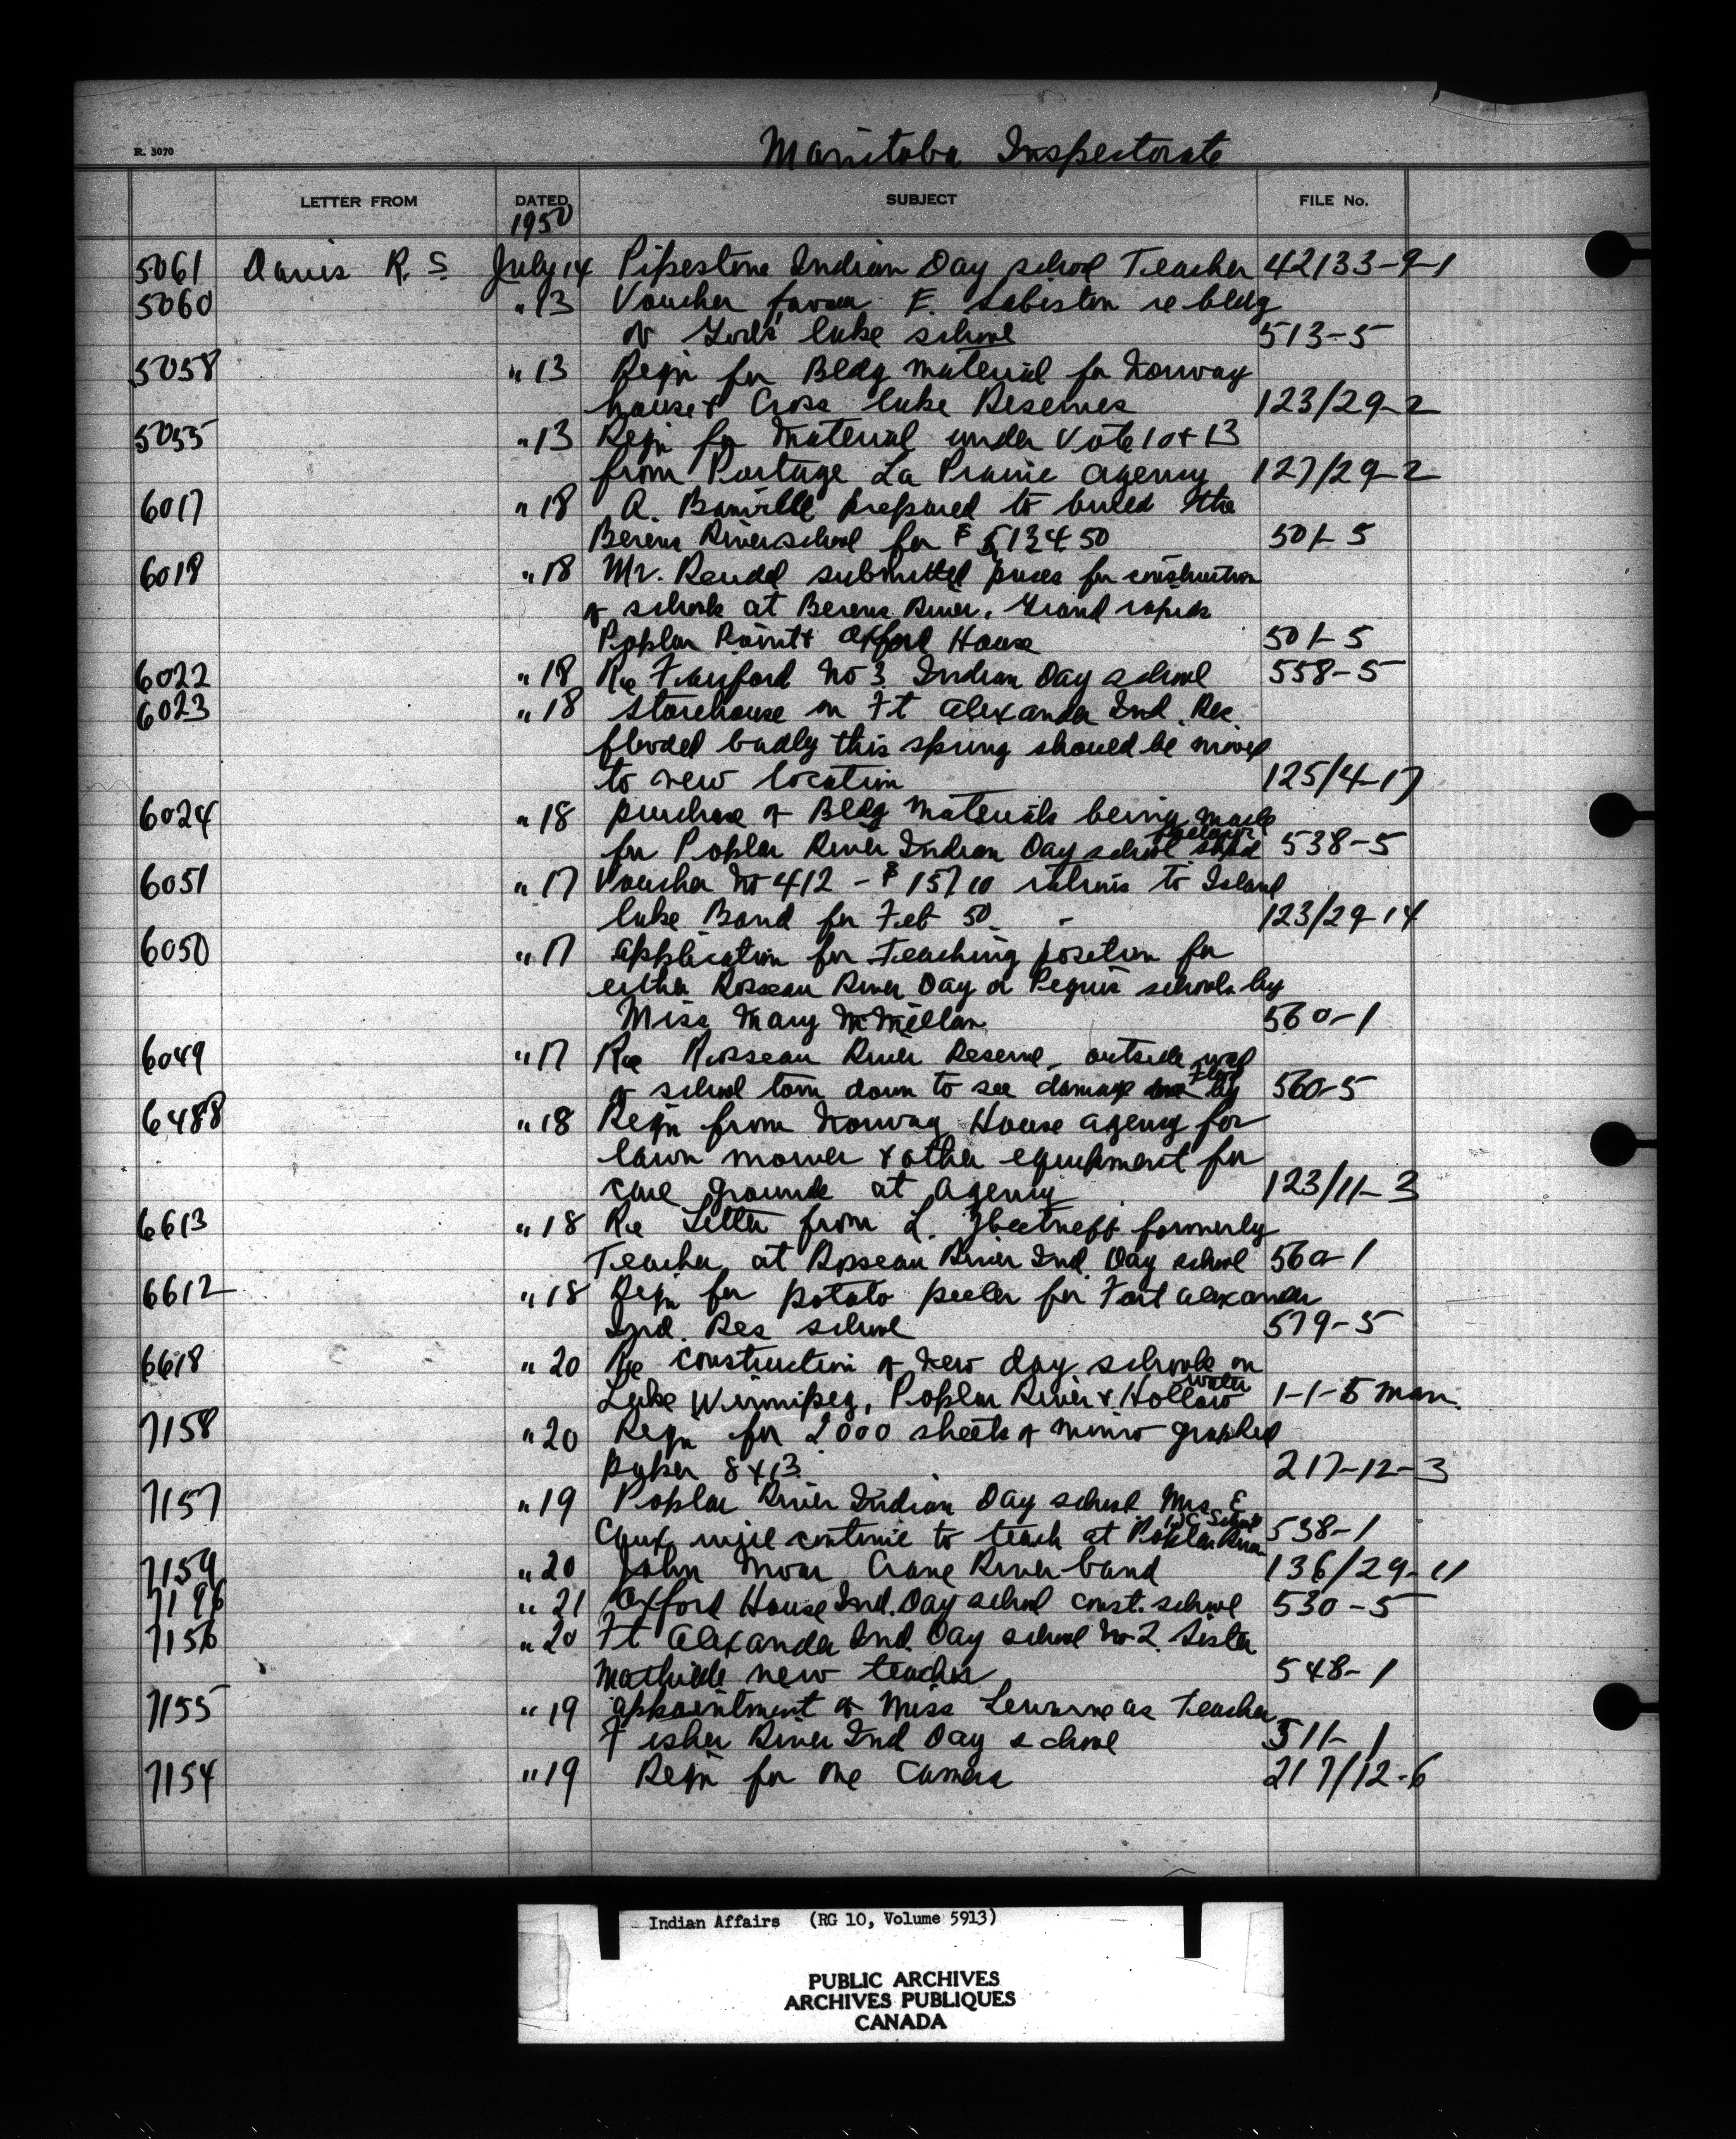 R. 3070
Manitoba Inspectorate
LETTER FROM DATED SUBJECT FILE No.
1950
5061 Davis R. S July 14 Pipestone Indian Day school Teacher 42133-9-1
5060 " 13 Voucher favour F. Sabiston re bldg
of Gods lake school 513-5
5058 " 13 Reqn for Bldg material for Norway
house & Cross lake Reserves 123/29-2
5055 " 13 Reqn for material under Vote 10 & 13
from Portage La Prairie agency 127/29-2
6017 " 18 A. prepared to build the
Berens River school for $ 5,134 50 501-5
6018 " 18 Mr. submitted prices for construction
of schools at Berens River, Grand rapids
Poplar Point & Oxford House 501-5
6022 " 18 Re Fairford No 3 Indian Day school 558-5
6023 " 18 Storehouse on Ft Alexander Ind. Res.
flooded badly this spring should be moved
to new location 125/4-17
6024 " 18 purchase of Bldg materials being made
for Poplar River Indian Day school shed 538-5
6051 " 17 Voucher No 412 - $ 157 10 to Island
lake Band for Feb 50 - 123/29-14
6050 " 17 application for Teaching position for
either Rosseau River Day or Peguis schools by
Miss Mary McMillan 560-1
6049 " 17 Re Rosseau River Reserve - outside wall
of school torn down to see damage by Flood 560-5
6488 " 18 Reqn from Norway House agency for
lawn mower & other equipment for
care grounds at Agency 123/11-3
6613 " 18 Re Letter from L. formerly
Teacher at Rosseau River Ind. Day school 560-1
6612 " 18 Reqn for potato peeler for Fort Alexander
Ind. Res school 579-5
6618 " 20 Re construction of New day schools on
Lake Winnipeg, Poplar River & Hollow water 1-1-5 Man.
7158 " 20 Reqn for 2000 sheets of mimo graphed
paper 8 x 13 217-12-3
7157 " 19 Poplar River Indian Day school Mrs E
will continue to teach at Poplar River 538-1
7159 " 20 John Moar Crane River band 136/29-11
7196 " 21 Oxford House Ind. Day school const. school 530-5
7156 " 20 Ft Alexander Ind. Day school No 2. Sister
Mathilde new teacher 548-1
7155 " 19 appointment of Miss as Teacher
Fisher River Ind Day school 511-1
7154 " 19 Reqn for one Camera 217/12-6
Indian Affairs (RG 10, Volume 5913)
PUBLIC ARCHIVES
ARCHIVES PUBLIQUES
CANADA